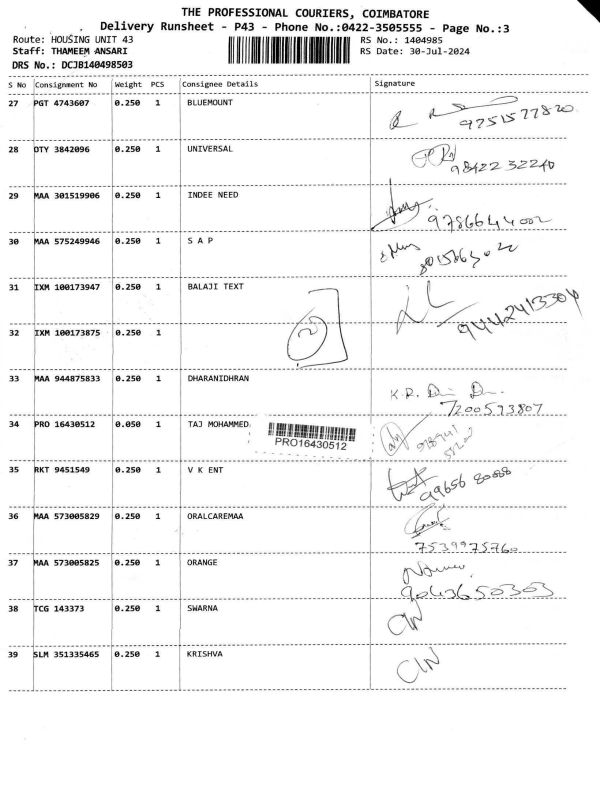 THE PROFESSIONAL COURIERS, COIMBATORE
Delivery Runsheet - P43 - Phone No.:0422-3505555 - Page No.:3
Route: HOUSING UNIT 43 RS No.: 1404985
Staff: THAMEEM ANSARI RS Date: 30-Jul-2024
DRS No.: DCJB140498503
S No Consignment No Weight PCS Consignee Details Signature
27 PGT 4743607 0.250 1 BLUEMOUNT
9751577820
28 OTY 3842096 0.250 1 UNIVERSAL
98422 32240
29 MAA 301519906 0.250 1 INDEE NEED
9786644002
30 MAA 575249946 0.250 1 S A P
31 IXM 100173947 0.250 1 BALAJI TEXT
9442413304
2
32 IXM 100173875 0.250 1
33 MAA 944875833 0.250 1 DHARANIDHRAN
K.R.
7200573807
34 PRO 16430512 0.050 1 TAJ MOHAMMED
PRO16430512
35 RKT 9451549 0.250 1 V K ENT
99656 80888
36 MAA 573005829 0.250 1 ORALCAREMAA
7539975760
37 MAA 573005825 0.250 1 ORANGE
9043650303
38 TCG 143373 0.250 1 SWARNA
C/N
39 SLM 351335465 0.250 1 KRISHVA
C/N